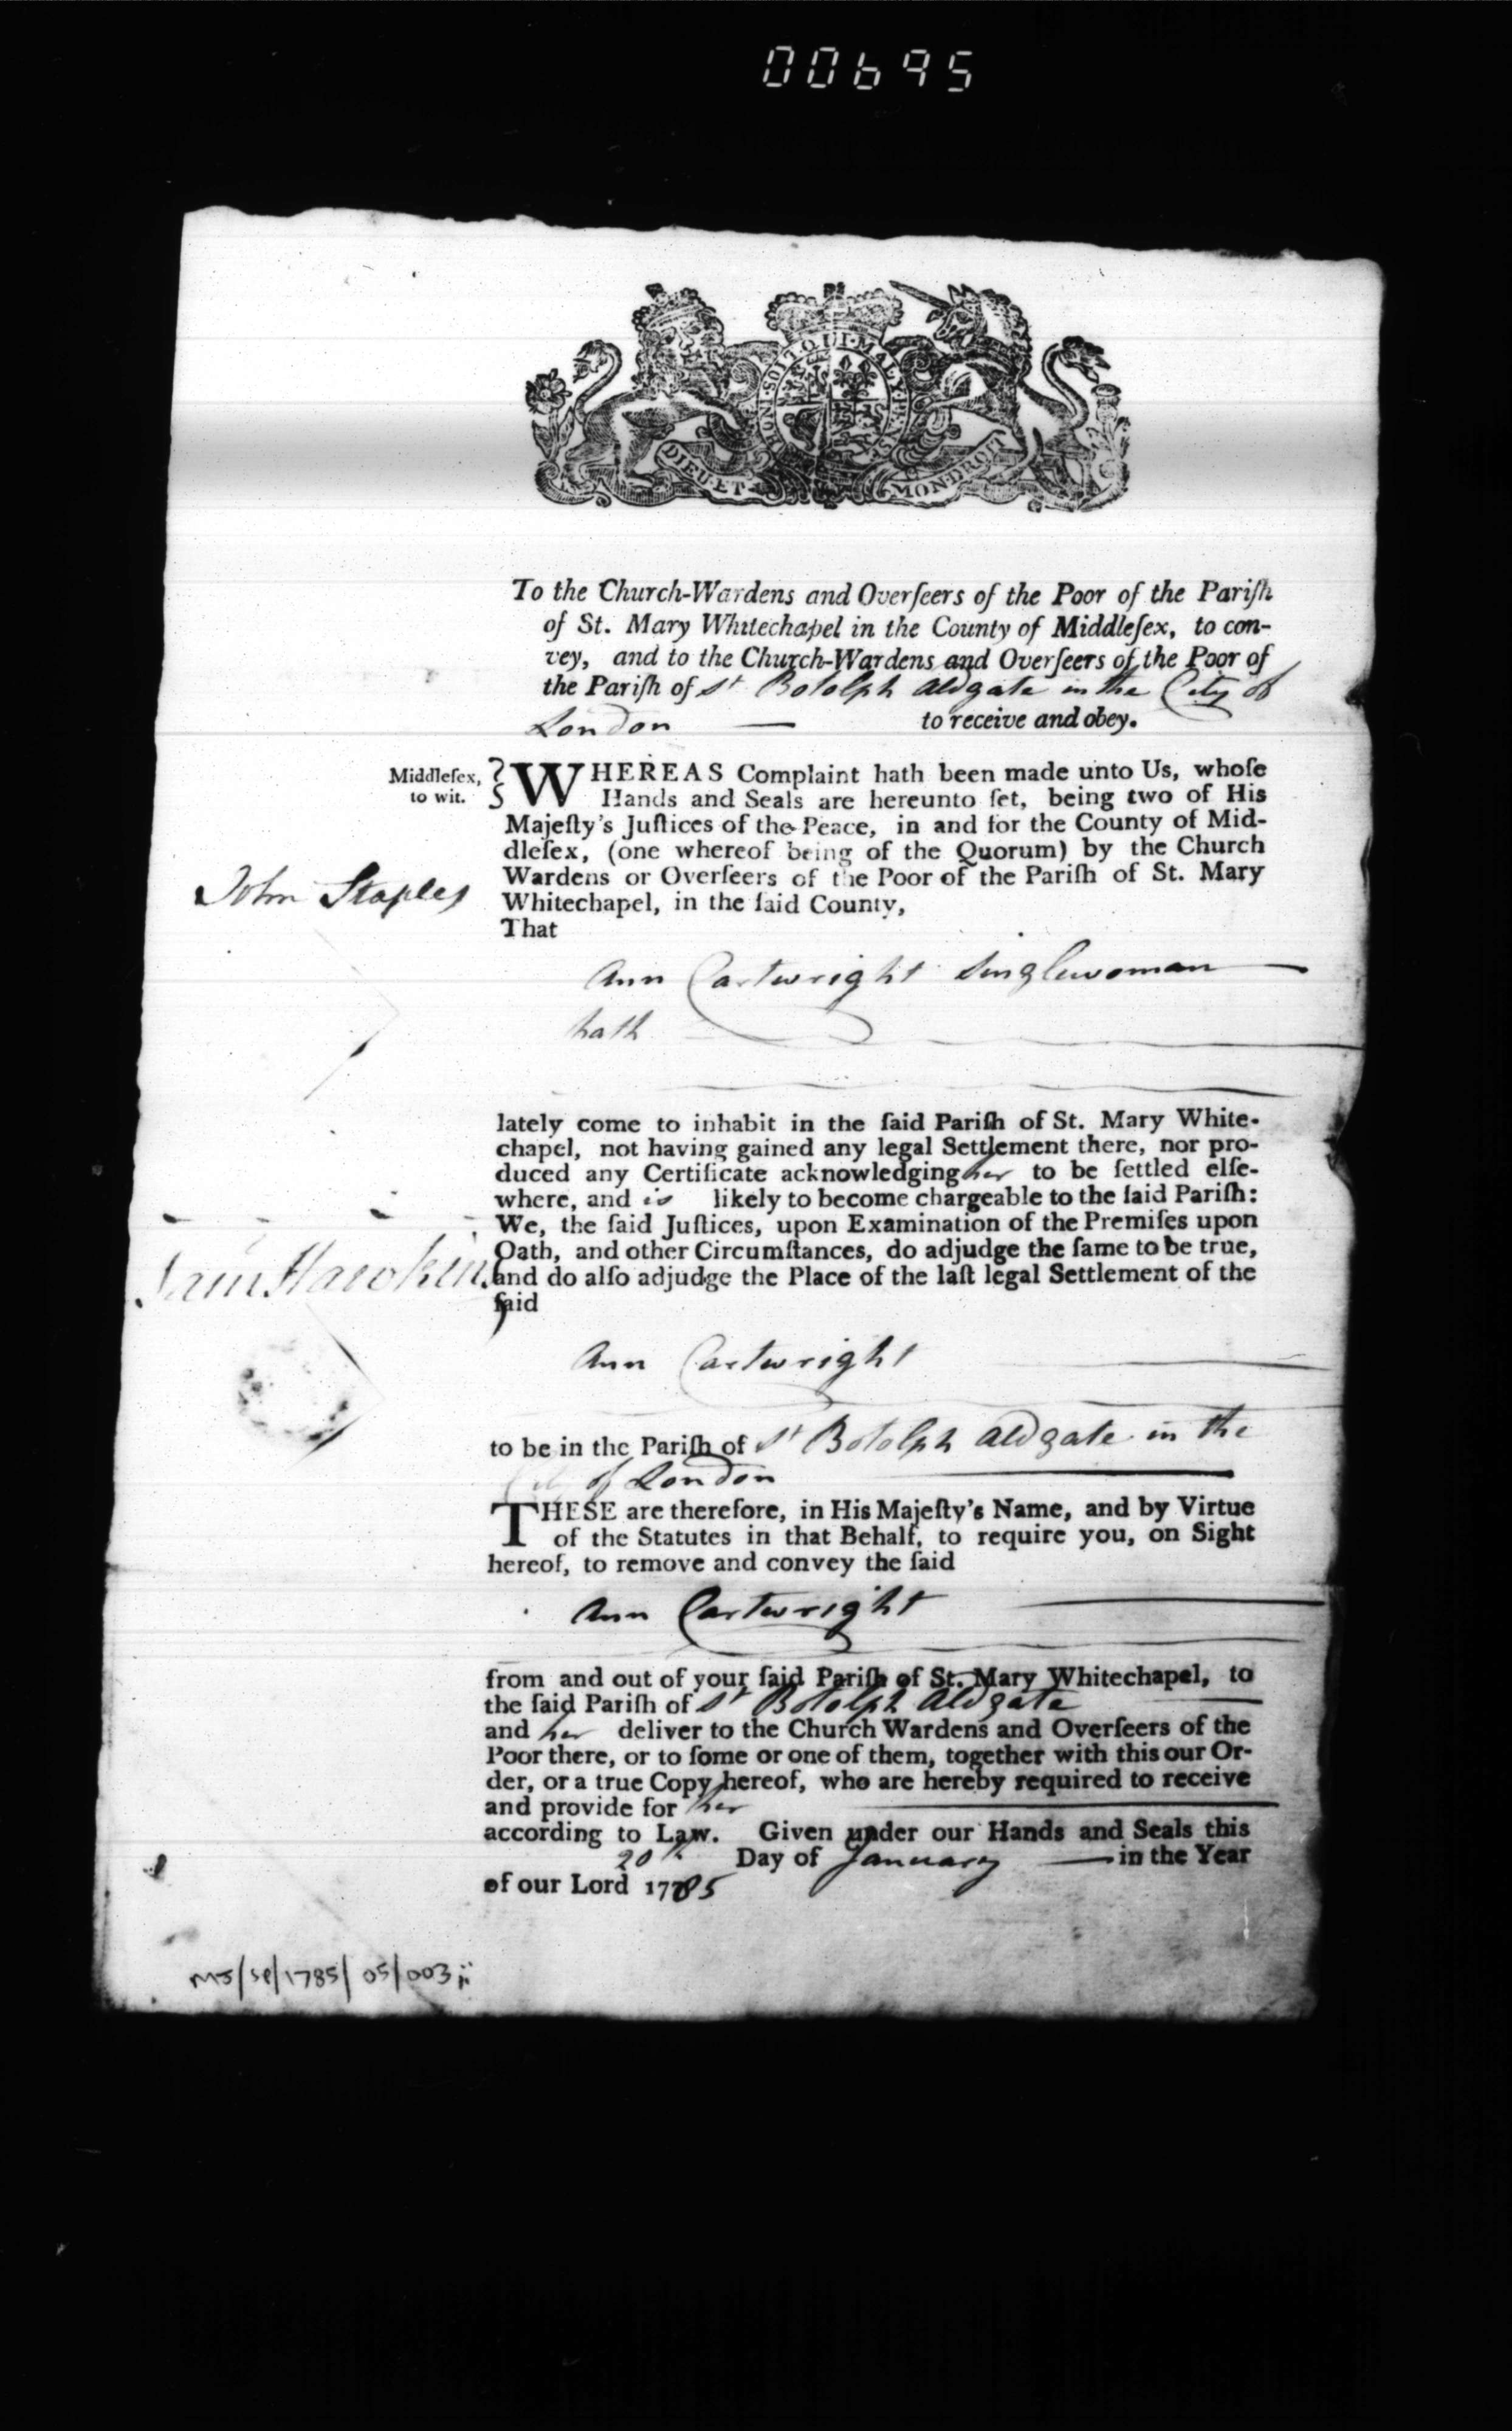 00695
HON·SOIT·QUI·MAL·Y·PENSE
DIEU·ET·
MON·DROIT
To the Church-Wardens and Overſeers of the Poor of the Pariſh
of St. Mary Whitechapel in the County of Middleſex, to con-
vey, and to the Church-Wardens and Overſeers of the Poor of
the Pariſh of St Botolph Aldgate in the City of
London — to receive and obey.
Middleſex,
to wit.
WHEREAS Complaint hath been made unto Us, whoſe
Hands and Seals are hereunto ſet, being two of His
Majeſty's Juſtices of the Peace, in and for the County of Mid-
dleſex, (one whereof being of the Quorum) by the Church
Wardens or Overſeers of the Poor of the Pariſh of St. Mary
John Staples
Whitechapel, in the ſaid County,
That
Ann Cartwright Singlewoman
hath
lately come to inhabit in the ſaid Pariſh of St. Mary White-
chapel, not having gained any legal Settlement there, nor pro-
duced any Certificate acknowledging her to be ſettled elſe-
where, and is likely to become chargeable to the ſaid Pariſh:
We, the ſaid Juſtices, upon Examination of the Premiſes upon
Oath, and other Circumſtances, do adjudge the ſame to be true,
Sam Hawkins
and do alſo adjudge the Place of the laſt legal Settlement of the
ſaid
Ann Cartwright
to be in the Pariſh of St Botolph Aldgate in the
City of London
THESE are therefore, in His Majeſty's Name, and by Virtue
of the Statutes in that Behalf, to require you, on Sight
hereof, to remove and convey the ſaid
Ann Cartwright
from and out of your ſaid Pariſh of St. Mary Whitechapel, to
the ſaid Pariſh of St Botolph Aldgate
and her deliver to the Church Wardens and Overſeers of the
Poor there, or to ſome or one of them, together with this our Or-
der, or a true Copy hereof, who are hereby required to receive
and provide for her
according to Law. Given under our Hands and Seals this
20th Day of January — in the Year
of our Lord 1785
MJ/SP/1785/05/003ii